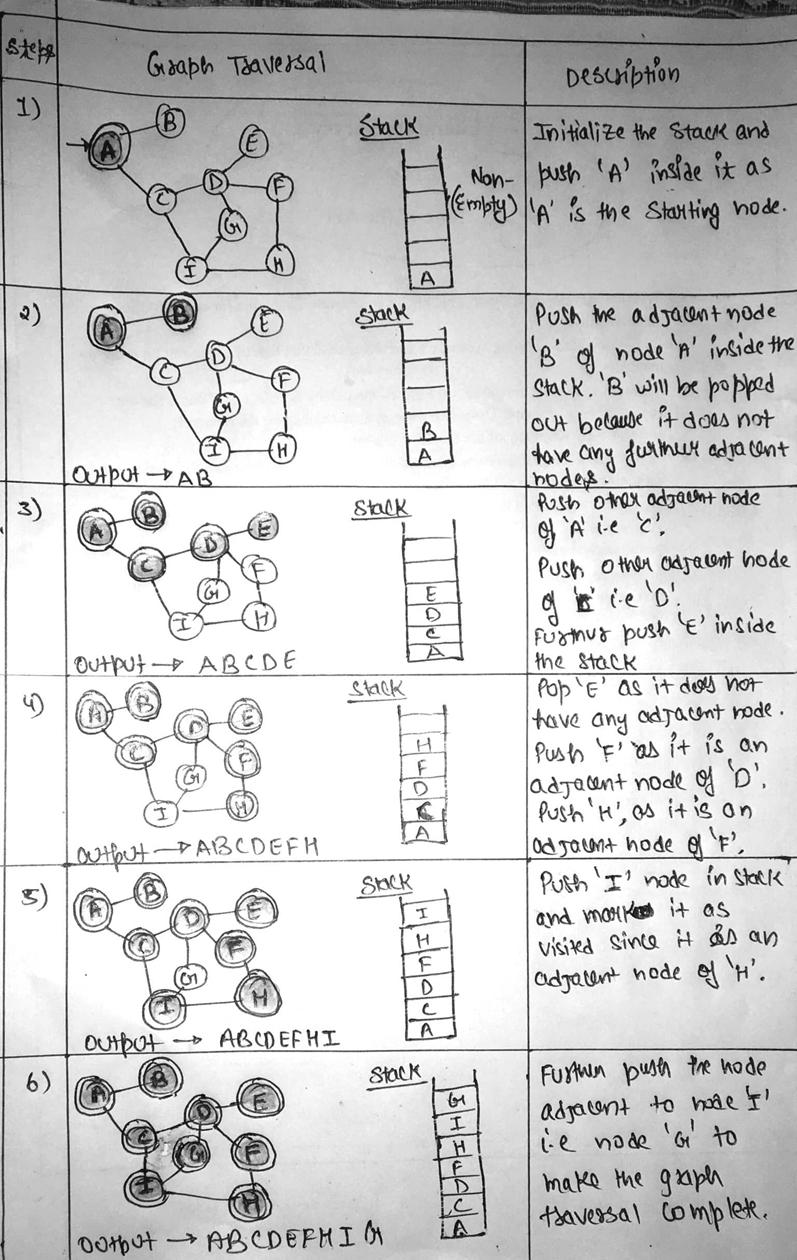 Steps
Graph Traversal
Description
1)
A
B
C
D
E
F
G
H
I
Stack
Non-
(Empty)
A
Initialize the Stack and
push 'A' inside it as
'A' is the Starting node.
2)
A
B
C
D
E
F
G
H
I
Output → AB
Stack
B
A
Push the adjacent node
'B' of node 'A' inside the
Stack. 'B' will be popped
out because it does not
have any further adjacent
nodes.
3)
A
B
C
D
E
F
G
H
I
Output → ABCDE
Stack
E
D
C
A
Push other adjacent node
of 'A' i.e 'C'.
Push other adjacent node
of i.e 'D'.
Further push 'E' inside
the stack
4)
A
B
C
D
E
F
G
H
I
Output → ABCDEFH
Stack
H
F
D
C
A
Pop 'E' as it does not
have any adjacent node.
Push 'F' as it is an
adjacent node of 'D'.
Push 'H', as it is an
adjacent node of 'F'.
5)
A
B
C
D
E
F
G
H
I
Output → ABCDEFHI
Stack
I
H
F
D
C
A
Push 'I' node in stack
and mark it as
visited since it is an
adjacent node of 'H'.
6)
A
B
C
D
E
F
G
H
I
Output → ABCDEFHIG
Stack
G
I
H
F
D
C
A
Further push the node
adjacent to node 'I'
i.e node 'G' to
make the graph
traversal complete.